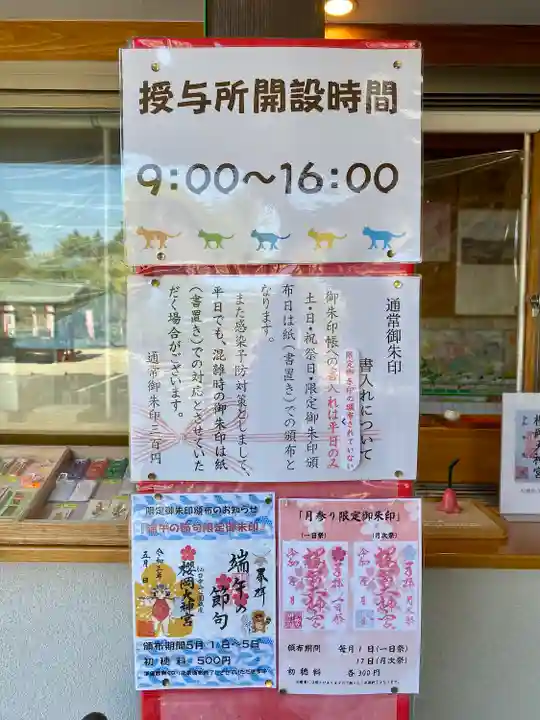 授与所開設時間
9:00〜16:00
通常御朱印
書入れについて
限定御朱印の頒布されていない
御朱印帳への書入れは平日のみ
土・日・祝祭日・限定御朱印頒
布日は紙(書置き)での頒布と
なります。
また感染予防対策としまして、
平日でも、混雑時の御朱印は紙
(書置き)での対応とさせていた
だく場合がございます。
通常御朱印三百円
限定御朱印頒布のお知らせ
「端午の節句限定御朱印」
奉拝
端午の節句
櫻岡大神宮
五月 日
頒布期間5月1日〜5日
初穂料 500円
「月参り限定御朱印」
(一日祭)
(月次祭)
頒布期間 毎月1日(一日祭)
17日(月次祭)
初穂料 各300円